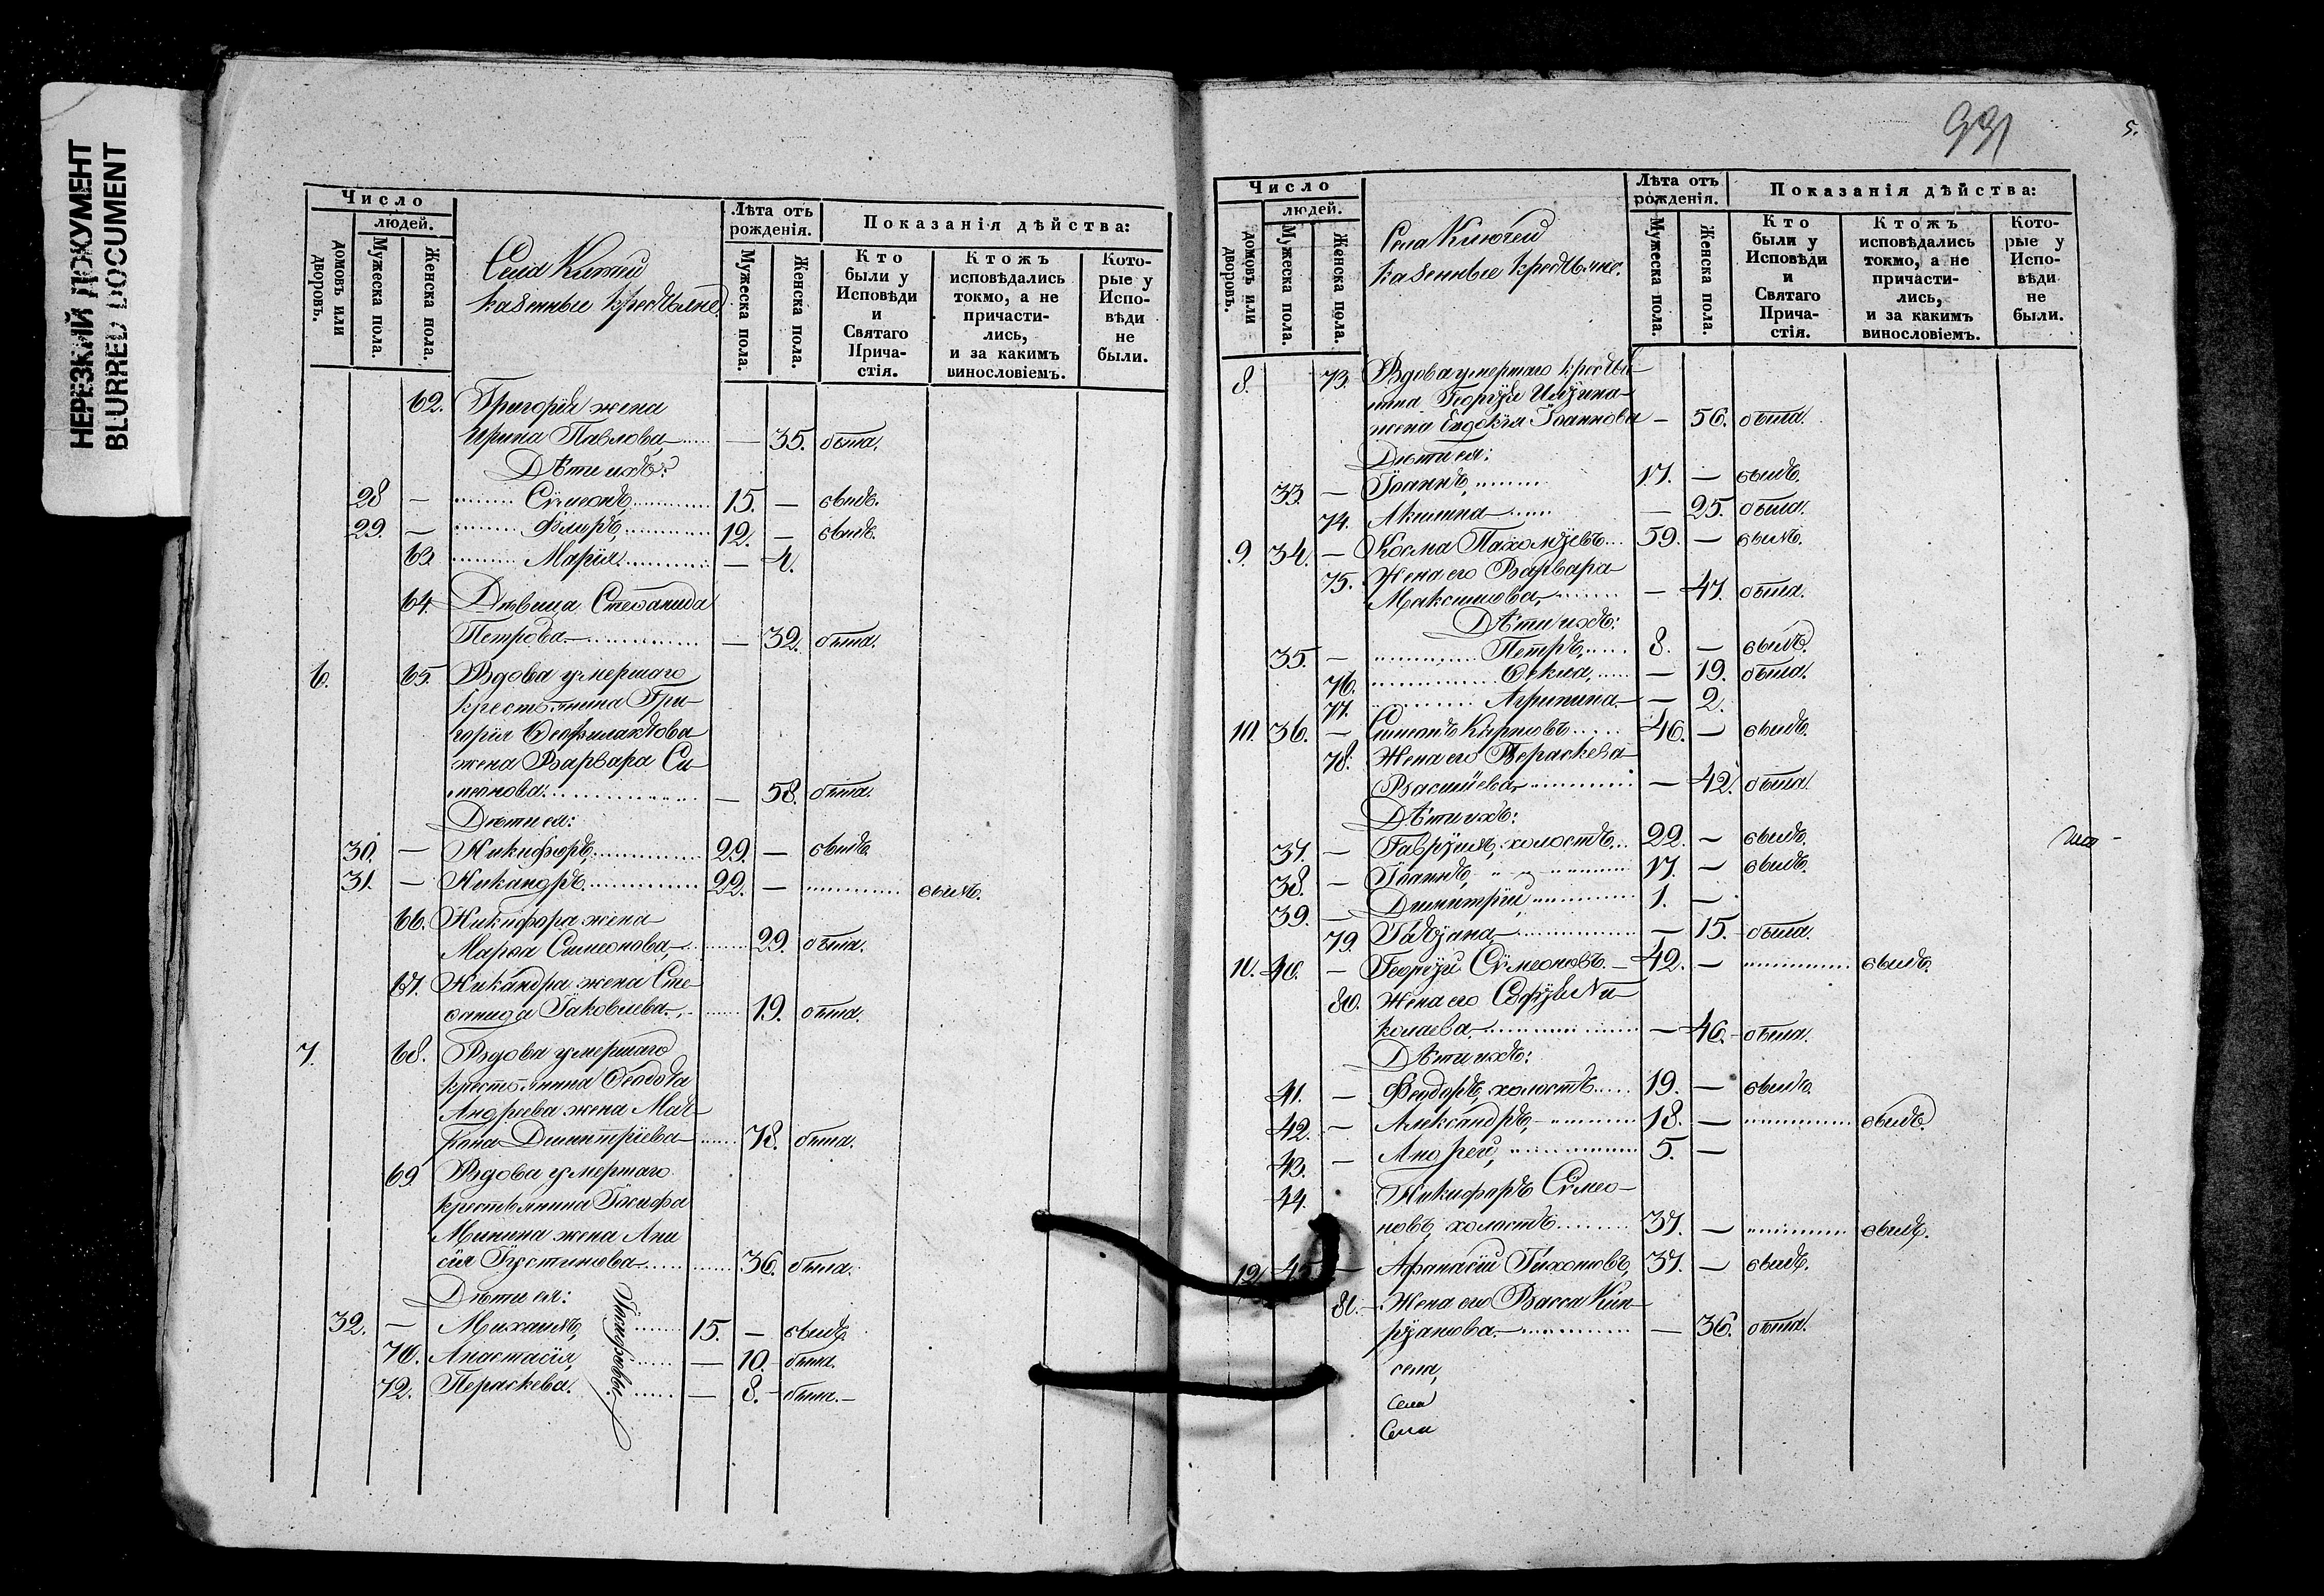 НЕРЕЗКИЙ ДОКУМЕНТ
BLURRED DOCUMENT
Число
людей.
домовъ или дворовъ.
Мужеска пола.
Женска пола.
Села
казенные крестьяне.
Лѣта отъ рожденія.
Мужеска пола.
Женска пола.
Показанія дѣйства:
Кто были у Исповѣди и Святаго Прича-стія.
Ктожъ исповѣдались токмо, а не причасти-лись, и за какимъ винословіемъ.
Кото-рые у Испо-вѣди не были.
62. Григорія жена
Ирина Павлова, — 35. была.
Дѣти ихъ:
28 — Сѵмеонъ, 15. — былъ.
29. — Флоръ, 12. — былъ.
63 Марія. — 4.
64. Дѣвица Стефанида
Петрова — 32. была.
6. 65. Вдова умершаго
крестьянина Гри-
горія Феофилактова
жена Варвара Си-
меонова. — 58. была.
Дѣти ея:
30. — Никифоръ, 29. — былъ.
31. — Никандръ, 22. — былъ.
66. Никифора жена
Марѳа Симеонова, 29. была.
67. Никандра жена Сте-
фанида Іаковлева. 19. была.
7. 68. Вдова умершаго
крестьянина Ѳеодота
Андреева жена Мат-
рона Димитріева 78. была.
69. Вдова умершаго
крестьянина
Минина жена Ани
сія Іустинова 36. была.
Дѣти ея:
32. — Михаилъ, 15. — былъ
70. Анастасія, — 10. — была.
72. Параскева. — 8. — была. —
931
5.
Число
людей.
домовъ или дворовъ.
Мужеска пола.
Женска пола.
Села Ключей
казенные крестьяне.
Лѣта отъ рожденія.
Мужеска пола.
Женска пола.
Показанія дѣйства:
Кто были у Исповѣди и Святаго Прича-стія.
Ктожъ исповѣдались токмо, а не причасти-лись, и за какимъ винословіемъ.
Кото-рые у Испо-вѣди не были.
8. 73. Вдова умершаго крестья-
нина Георгія
жена Евдокія Іоаннова — 56. была.
Дѣти ея:
33. — Іоаннъ, 17. — былъ.
74. Акилина — 25. была.
9. 34. — Косма Пахомӱевъ 59. — былъ.
75. Жена его Варвара
Максимова, — 47. была.
Дѣти ихъ:
35. — Петръ, 8. — былъ.
76. Ѳекла, — 19. была.
77. Агрипина. — 2.
10. 36. — Симонъ Карповъ 46. — былъ.
78. Жена его Параскева
Васильева, — 42. была.
Дѣти ихъ:
37. — Гавріилъ, холостъ. 22. — былъ.
38. — Іоаннъ, „ „ 17. — былъ.
39. — Димитрій, 1. —
79. Татіана, — 15. была.
10. 40. — Георгій Сѵмеоновъ. — 42. — былъ.
80. Жена его Софія Ни-
колаева. — 46. — была.
Дѣти ихъ:
41. — Феодоръ, холостъ. 19. — былъ.
42. — Александръ, 18. — былъ.
43. — Андрей, 5. —
44. Никифоръ Сѵмео-
новъ, холостъ 37. — былъ.
12. 45. — Афанасій Тихоновъ, 37. — былъ.
81. Жена его Васса Кип-
ріанова. — 36. была.
села,
села
Села